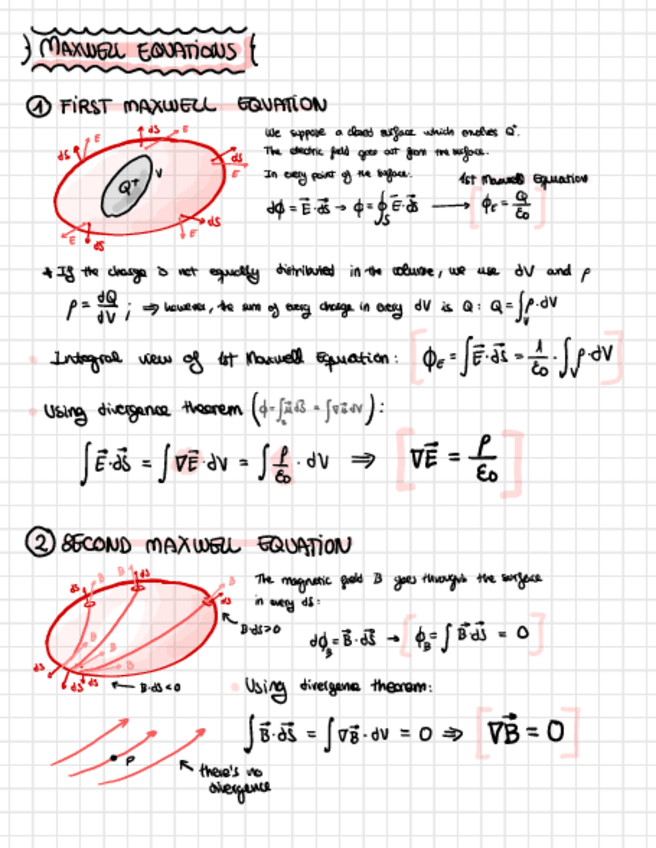 MAXWELL EQUATIONS
① FIRST MAXWELL EQUATION
We suppose a closed surface which envolves Q⁺.
The electric field goes out from the surface.
In every point of the surface:
1st Maxwell Equation
dϕ = E⃗·dS⃗ → ϕ = ∮_S E⃗·dS⃗ ⟶ [ϕ_E = Q/ε₀]
dS E dS E dS E V Q⁺ E dS E dS
* If the charge is not equally distributed in the volume, we use dV and ρ
ρ = dQ/dV ; ⇒ however, the sum of every charge in every dV is Q: Q = ∫_V ρ·dV
• Integral view of 1st Maxwell Equation: [ϕ_E = ∫E⃗·dS⃗ = 1/ε₀ · ∫_V ρ·dV]
• Using divergence theorem :
∫E⃗·dS⃗ = ∫∇E⃗·dV = ∫ρ/ε₀ · dV ⇒ [∇E⃗ = ρ/ε₀]
② SECOND MAXWELL EQUATION
The magnetic field B goes through the surface
in every dS:
dϕ_B = B⃗·dS⃗ → [ϕ_B = ∫B⃗·dS⃗ = 0]
dS B B dS B dS B B B dS dS dS
B·dS>0
← B·dS<0
• Using divergence theorem:
∫B⃗·dS⃗ = ∫∇B⃗·dV = 0 ⇒ [∇B⃗ = 0]
P
there's no
divergence